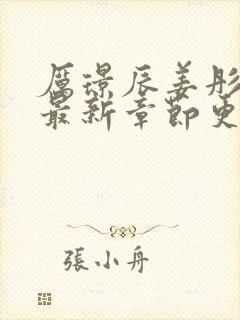 厲璟辰姜彤
最新章節更
張小舟